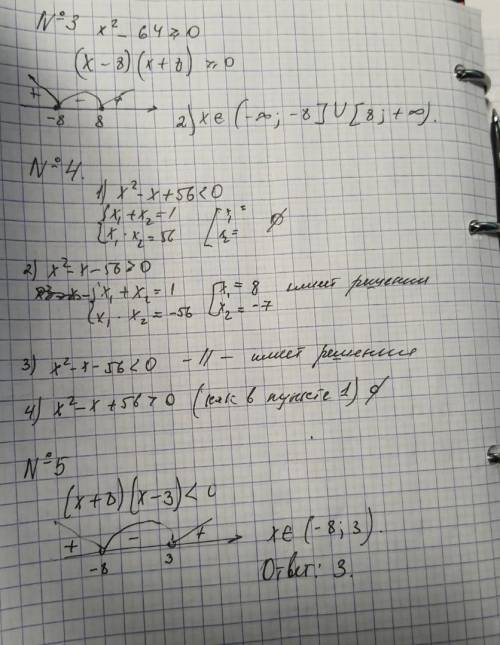 №3 x² - 64 ≥ 0
(x-8)(x+8) ≥ 0
+ - +
-8 8
2) x∈(-∞; -8]∪[8; +∞).
№4.
1) x² - x + 56 < 0
{x₁ + x₂ = 1 [x₁ =
{x₁ · x₂ = 56 [x₂ = ∅
2) x² - x - 56 > 0
{x₁ + x₂ = 1 [x₁ = 8 имеет решения
{x₁ · x₂ = -56 [x₂ = -7
3) x² - x - 56 < 0 -11- имеет решения
4) x² - x + 56 > 0 (как в пункте 1) ∅
№5
(x+8)(x-3) < 0
+ - +
-8 3
x∈(-8; 3).
Ответ: 3.